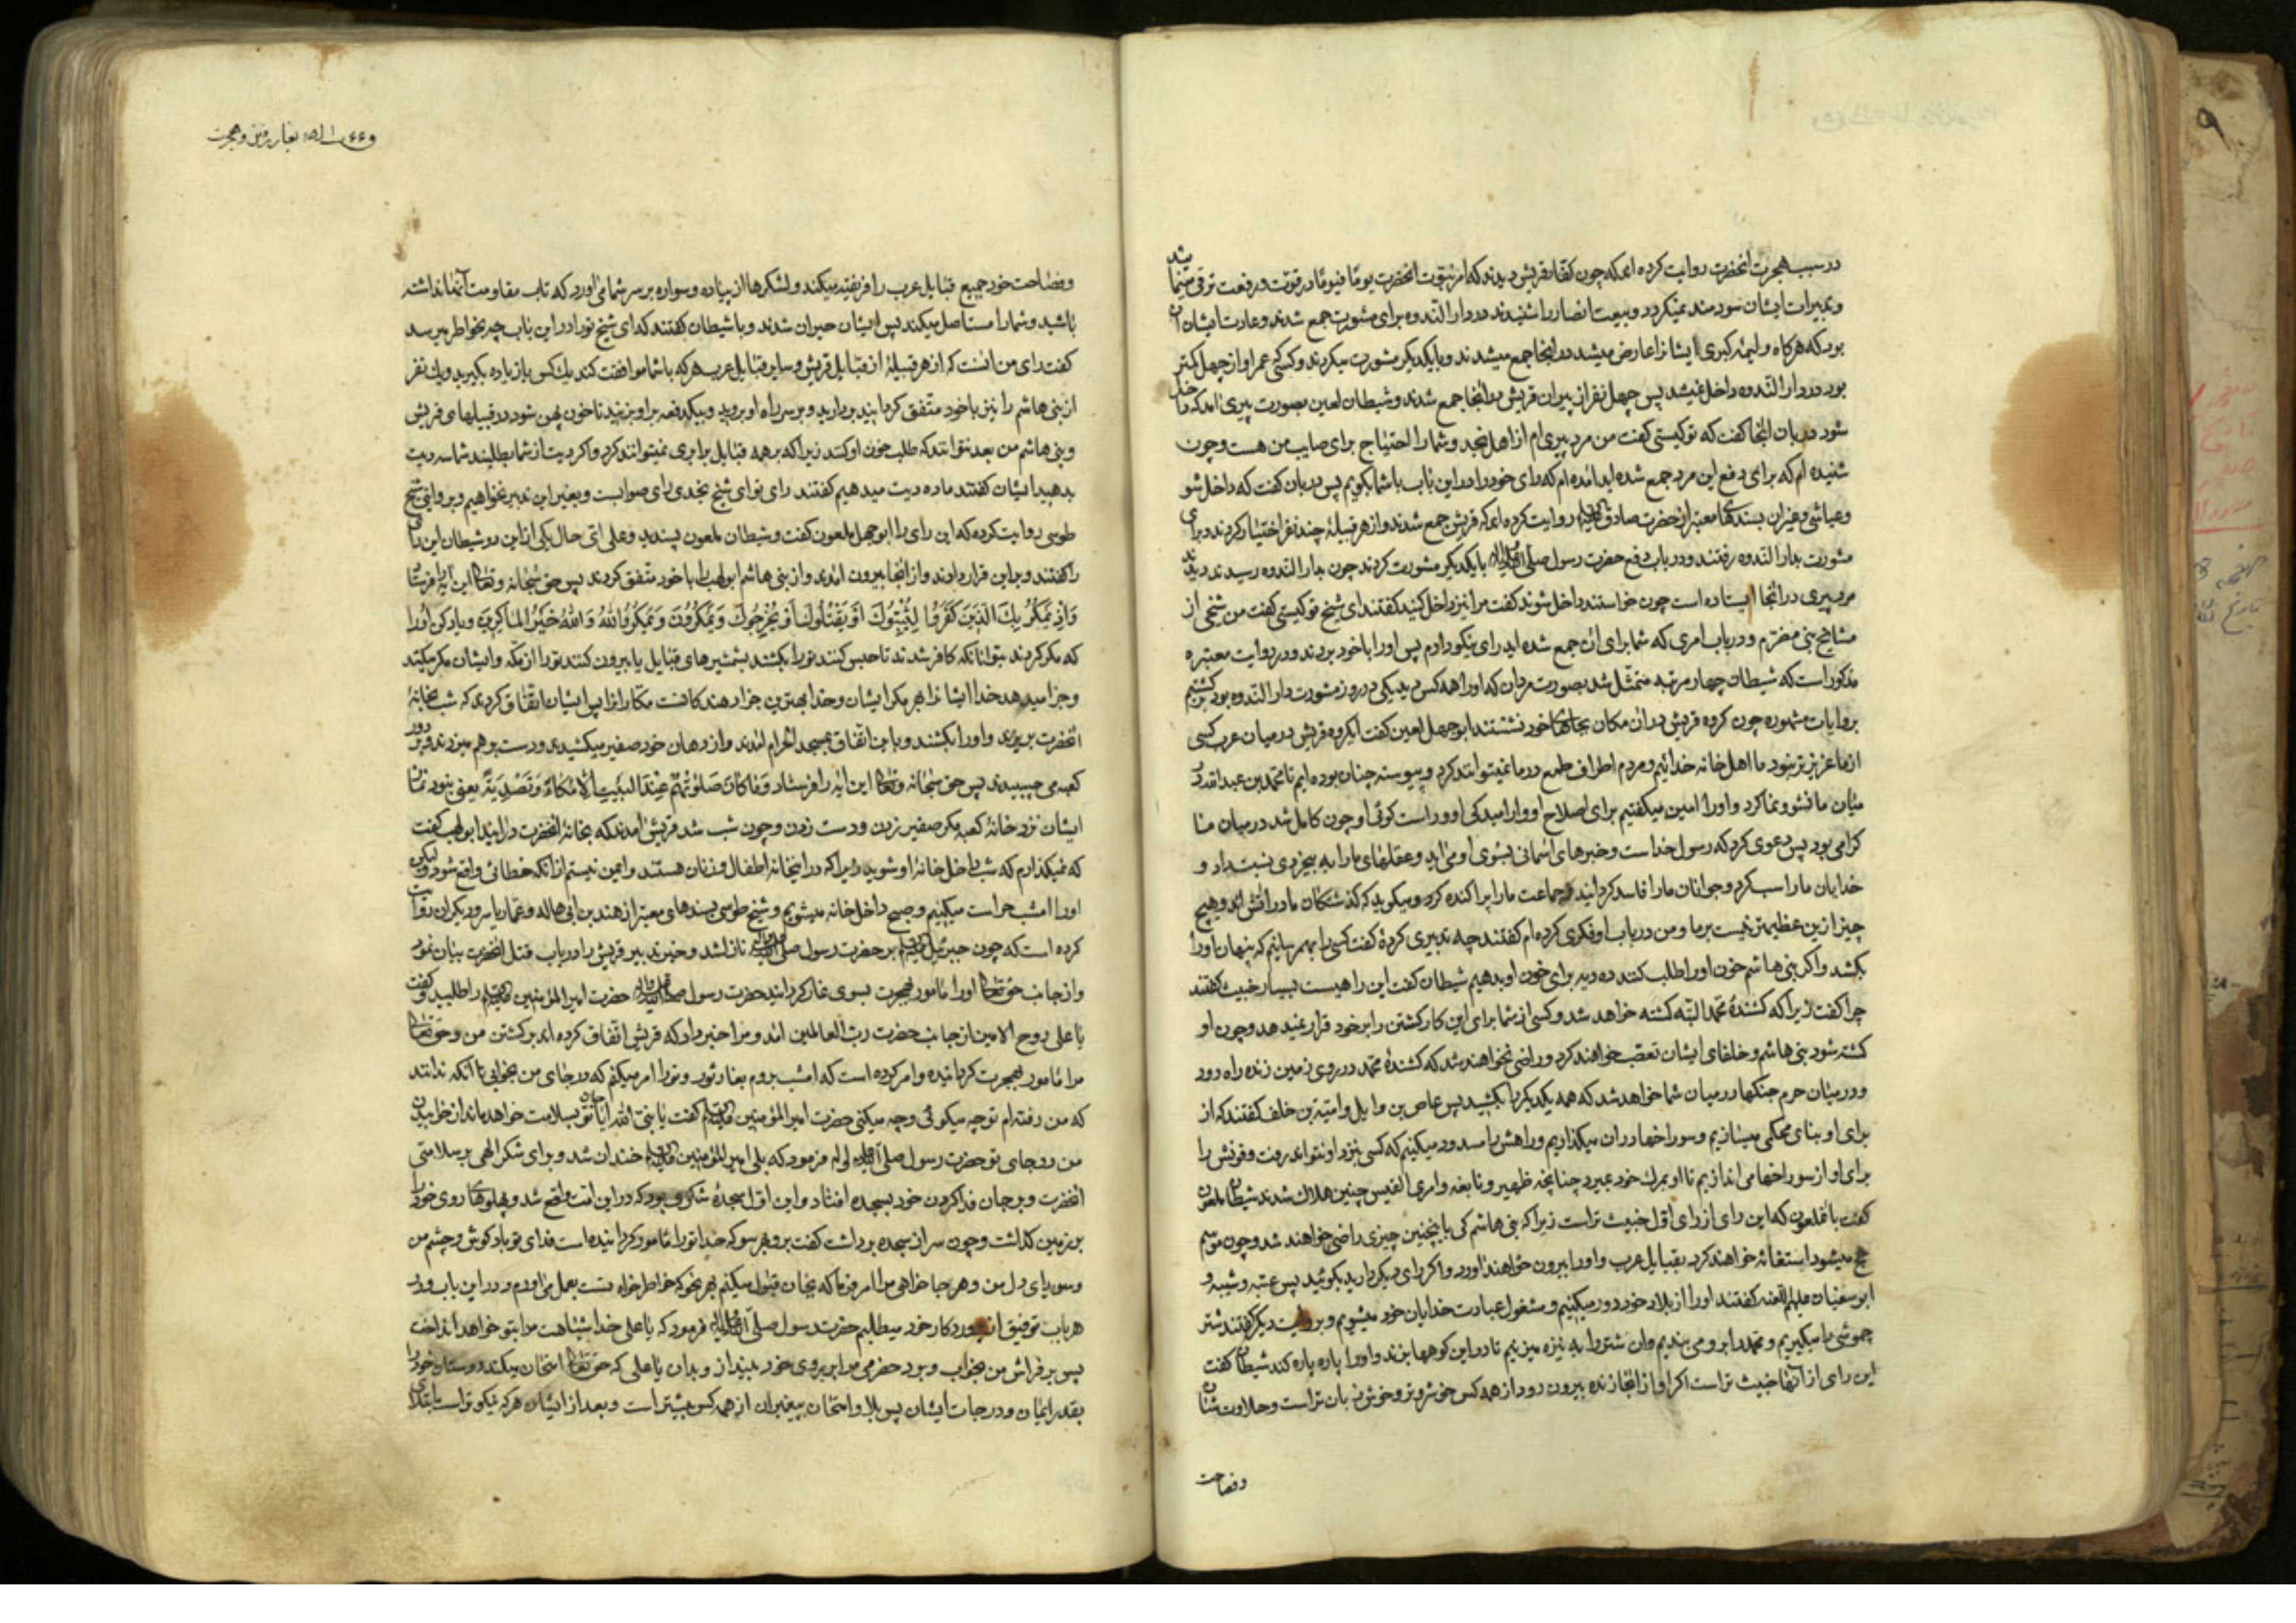 در سبب هجرت آنحضرت روایت کرده اند که چون کفار قریش دیدند که امر نبوت آنحضرت یوما فیوما در قوت و رفعت ترقی مینماید
و تدبیرات ایشان سودمند نمیگردد و بیعت انصار را شنیدند در دار الندوه برای مشورت جمع شدند و عادت ایشان آن
بود که هرگاه واهمه کبری ایشانرا عارض میشد در آنجا جمع میشدند و با یکدیگر مشورت میکردند و کسی که عمر او از چهل کمتر
بود در دار الندوه داخل نمیشد پس چهل نفر از پیران قریش در آنجا جمع شدند و شیطان لعین بصورت پیری آمد که داخل
شود دربان آنجا گفت که تو کیستی گفت من مرد پیری ام از اهل نجد و شما را احتیاج برای صایب من هست و چون
شنیده ام که برای دفع این مرد جمع شده اید آمده ام که رای خود را در این باب با شما بگویم پس دربان گفت که داخل شو
و عیاشی و غیر آن بسندهای معتبر از حضرت صادق روایت کرده اند که قریش جمع شدند و از هر قبیلهٔ چند نفر اختیار کردند و برای
مشورت بدار الندوه رفتند و در باب دفع حضرت رسول صلی الله علیه و آله با یکدیگر مشورت کردند چون بدار الندوه رسیدند دیدند
مرد پیری در آنجا ایستاده است چون خواستند داخل شوند گفت مرا نیز داخل کنید گفتند ای شیخ تو کیستی گفت من شیخی از
مشایخ بنی مضرم و در باب امری که شما برای آن جمع شده اید رای نیکو دارم پس او را با خود بردند و در روایت معتبره
مذکور است که شیطان چهار مرتبه متمثل شد بصورت مردان که او را همه کس دید یکی در روز مشورت دار الندوه بود
بروایات مشهوره چون گروه قریش در آن مکان بجاهای خود نشستند ابو جهل لعین گفت ای گروه قریش در میان عرب کسی
از ما عزیزتر نبود ما اهل خانه خدائیم و مردم اطراف طمع در ما نمیتوانند کرد و پیوسته چنان بوده ایم تا محمد بن عبد الله در
میان ما نشو و نما کرد و او را امین میگفتیم برای اصلاح او و آرامیدگی او و راست گوئی او چون کامل شد در میان ما
گرامی بود پس دعوی کرد که رسول خداست و خبرهای آسمانی بسوی او می آید و عقلهای ما را به بیخردی نسبت داد و
خدایان ما را سب کرد و جوانان ما را فاسد گردانید و جماعت ما را پراکنده کرد و میگوید که گذشتگان ما در آتش اند و هیچ
چیز از این عظیمتر نیست بر ما و من در باب او فکری کرده ام گفتند چه تدبیری کردهٔ گفت کسی را بهم رسانیم که پنهان او را
بکشد و اگر بنی هاشم خون او را طلب کنند ده دیه برای خون او بدهیم شیطان گفت این راهیست بسیار خبیث گفتند
چرا گفت زیرا که کشندهٔ محمد البته کشته خواهد شد و کسی از شما برای این کار کشتن را بر خود قرار نمیدهد و چون او
کشته شود بنی هاشم و خلفای ایشان تعصب خواهند کرد و راضی نخواهند شد که کشندهٔ محمد در روی زمین زنده راه رود
و در میان حرم جنگها در میان شما خواهد شد که همه یکدیگر را بکشید پس عاص بن وایل و امیة بن خلف گفتند که از
برای او بنای محکمی میسازیم و سوراخها در آن میگذاریم و راهش را مسدود میکنیم که کسی بنزد او نتواند رفت و قوتش را
برای او از سوراخها می اندازیم تا او بمرگ خود بمیرد چنانچه ظهیر و نابغه و امرئ القیس چنین هلاک شدند شیطان ملعون
گفت با ملعون که این رای از رای اول خبیث تر است زیرا که بنی هاشم کی باینچنین چیزی راضی خواهند شد و چون موسم
حج میشود استغاثه خواهند کرد بقبایل عرب و او را بیرون خواهند آورد و اگر رای دیگر دارید بگوئید پس عتبه و شیبه و
ابو سفیان علیهم اللعنه گفتند او را از بلاد خود دور میکنیم و مشغول عبادت خدایان خود میشویم و بروایت دیگر گفتند شتر
چموشی را میگیریم و محمد را بر او می بندیم و آن شتر را به نیزه میزنیم تا در این کوهها بزند و او را پاره پاره کند شیطان گفت
این رای از آنها خبیث تر است اگر او از آنجا زنده بیرون رود از همه کس خوشروتر و خوش زبان تر است و حلاوت
و فصاحت
بغار رفتن و هجرت
و فصاحت خود جمیع قبایل عرب را فریفته میکند و لشکرها از پیاده و سواره بر سر شما می آورد که تاب مقاومت آنها نداشته
باشید و شما را مستاصل میکند پس ایشان حیران شدند و با شیطان گفتند که ای شیخ تو را در این باب چه بخاطر میرسد
گفت رای من آنست که از هر قبیلهٔ از قبایل قریش و سایر قبایل عرب هر که با شما موافقت کند یک کس یا زیاده بگیرید و یک نفر
از بنی هاشم را نیز با خود متفق گردانید بردارید و بر سر راه او بروید و بیکدفعه بر او بزنید تا خون پهن شود در قبیلهای قریش
و بنی هاشم من بعد نتوانند که طلب خون او کنند زیرا که بر همه قبایل برابری نمیتوانند کرد و اگر دیت از شما بطلبند شما سه دیت
بدهید ایشان گفتند ما ده دیت میدهیم گفتند رای تو ای شیخ نجدی رای صوابست و بغیر این تدبیر نخواهیم و بروایتی شیخ
طوسی روایت کرده که این رای را ابو جهل ملعون گفت و شیطان ملعون پسندید و علی ای حال یکی از این دو شیطان این رای
را گفتند و بر این قرار دادند و از آنجا بیرون آمدند و از بنی هاشم ابو لهب را با خود متفق کردند پس حق سبحانه و تعالی این آیه را فرستاد
وَإِذْ يَمْكُرُ بِكَ الَّذِينَ كَفَرُوا لِيُثْبِتُوكَ أَوْ يَقْتُلُوكَ أَوْ يُخْرِجُوكَ وَيَمْكُرُونَ وَيَمْكُرُ اللَّهُ وَاللَّهُ خَيْرُ الْمَاكِرِينَ و یاد کن آنرا
که مکر کردند بتو آنانکه کافر شدند تا حبس کنند تو را یا بکشند بشمشیرهای قبایل یا بیرون کنند تو را از مکه و ایشان مکر میکنند
و جزا میدهد خدا ایشانرا بر مکر ایشان و خدا بهترین جزا دهندگانست مکاران را پس ایشان اتفاق کردند که شب بخانهٔ
آنحضرت بریزند و او را بکشند و با این اتفاق بمسجد الحرام آمدند و از دهان خود صفیر میکشیدند و دست بر هم میزدند و بر دور
کعبه می چسبیدند پس حق سبحانه و تعالی این آیه را فرستاد وَمَا كَانَ صَلَوٰتُهُمْ عِنْدَ الْبَيْتِ إِلَّا مُكَاءً وَتَصْدِيَةً یعنی نبود نماز
ایشان نزد خانهٔ کعبه مگر صفیر زدن و دست زدن و چون شب شد قریش آمدند که بخانهٔ آنحضرت درآیند ابو لهب گفت
که نمیگذارم که شب داخل خانهٔ او شوید زیرا که در این خانه اطفال و زنان هستند و ایمن نیستم از آنکه خطائی واقع شود ولیکن
او را امشب حراست میکنیم و صبح داخل خانه میشویم و شیخ طوسی بسندهای معتبر از هند بن ابی هاله و عمار یاسر و دیگران روایت
کرده است که چون جبرئیل بر حضرت رسول صلی الله علیه و آله نازل شد و خبر تدبیر قریش را در باب قتل آنحضرت بیان نمود
و از جانب حق تعالی او را مامور بهجرت بسوی غار گردانید حضرت رسول حضرت امیر المؤمنین را طلبید و گفت
یا علی روح الامین از جانب حضرت رب العالمین آمد و مرا خبر داد که قریش اتفاق کرده اند بر کشتن من و حق تعالی
مرا مامور بهجرت گردانیده و امر کرده است که امشب بروم بغار ثور و تو را امر میکنم که در جای من بخوابی تا آنکه ندانند
که من رفته ام تو چه میگوئی و چه میکنی حضرت امیر المؤمنین گفت یا نبی الله آیا جان تو بسلامت خواهد ماند از خوابیدن
من در جای تو حضرت رسول صلی الله علیه و آله فرمود که بلی امیر المؤمنین خندان شد و برای شکر الهی بر سلامتی
آنحضرت و بر جان فدا کردن خود بسجده افتاد و این اول سجدهٔ شکری بود که در این امت واقع شد و پهلوهای روی خود را
بر زمین گذاشت و چون سر از سجده برداشت گفت برو بهر سو که خدا تو را مامور گردانیده است فدای تو باد گوش و چشم من
و سویدای دل من و هر چه خواهی مرا امر فرما که بجان قبول میکنم بهر نحو که خاطر خواه تست بعمل می آورم و در این باب و در
هر باب توفیق از پروردگار خود میطلبم حضرت رسول صلی الله علیه و آله فرمود که یا علی خدا شباهت مرا بتو خواهد انداخت
پس بر فراش من بخواب و برد حضرمی مرا بر روی خود بینداز و بدان یا علی که حق تعالی امتحان میکند دوستان خود را
بقدر ایمان و درجات ایشان پس بلا و امتحان پیغمبران از همه کس بیشتر است و بعد از ایشان هر که نیکوتر است